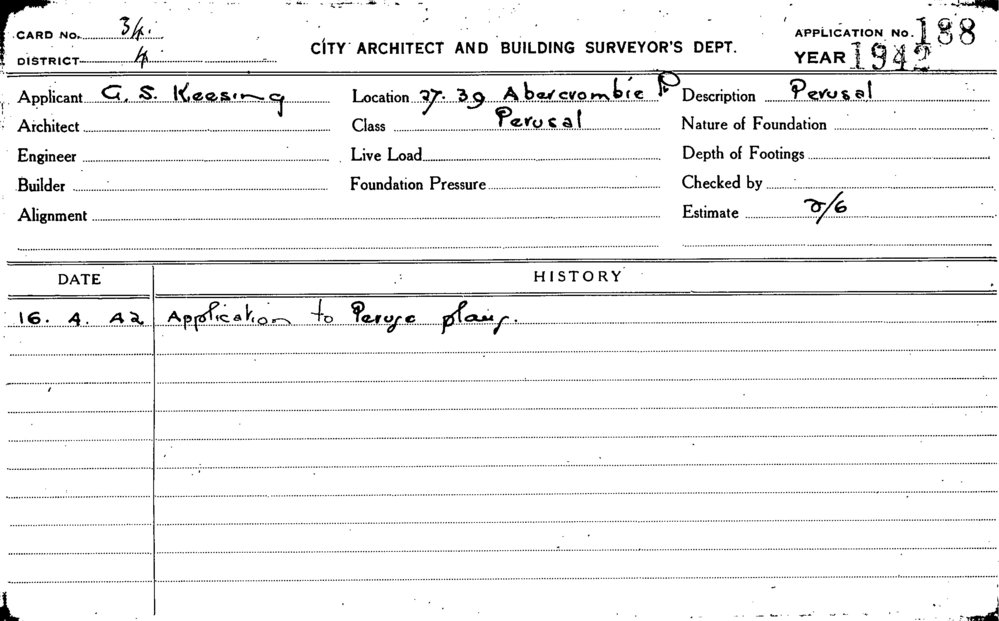 CARD No. 34.
DISTRICT 4
CITY ARCHITECT AND BUILDING SURVEYOR'S DEPT.
APPLICATION No. 188
YEAR 1942
Applicant G. S. Keesing Location 37. 39 Abercrombie P. Description Perusal
Architect Class Perusal Nature of Foundation
Engineer Live Load Depth of Footings
Builder Foundation Pressure Checked by
Alignment Estimate 2/6
DATE HISTORY
16. 4. 42 Application to Peruse plans.